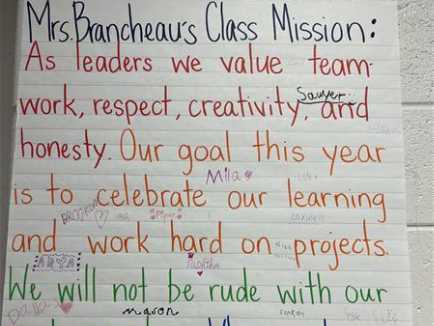 Mrs. Brancheau's Class Mission:
As leaders we value team-
work, respect, creativity, and
Sawyer
honesty. Our goal this year
Mila
is to celebrate our learning
Piper
and work hard on projects.
ARYA
We will not be rude with our
Dallas
mason